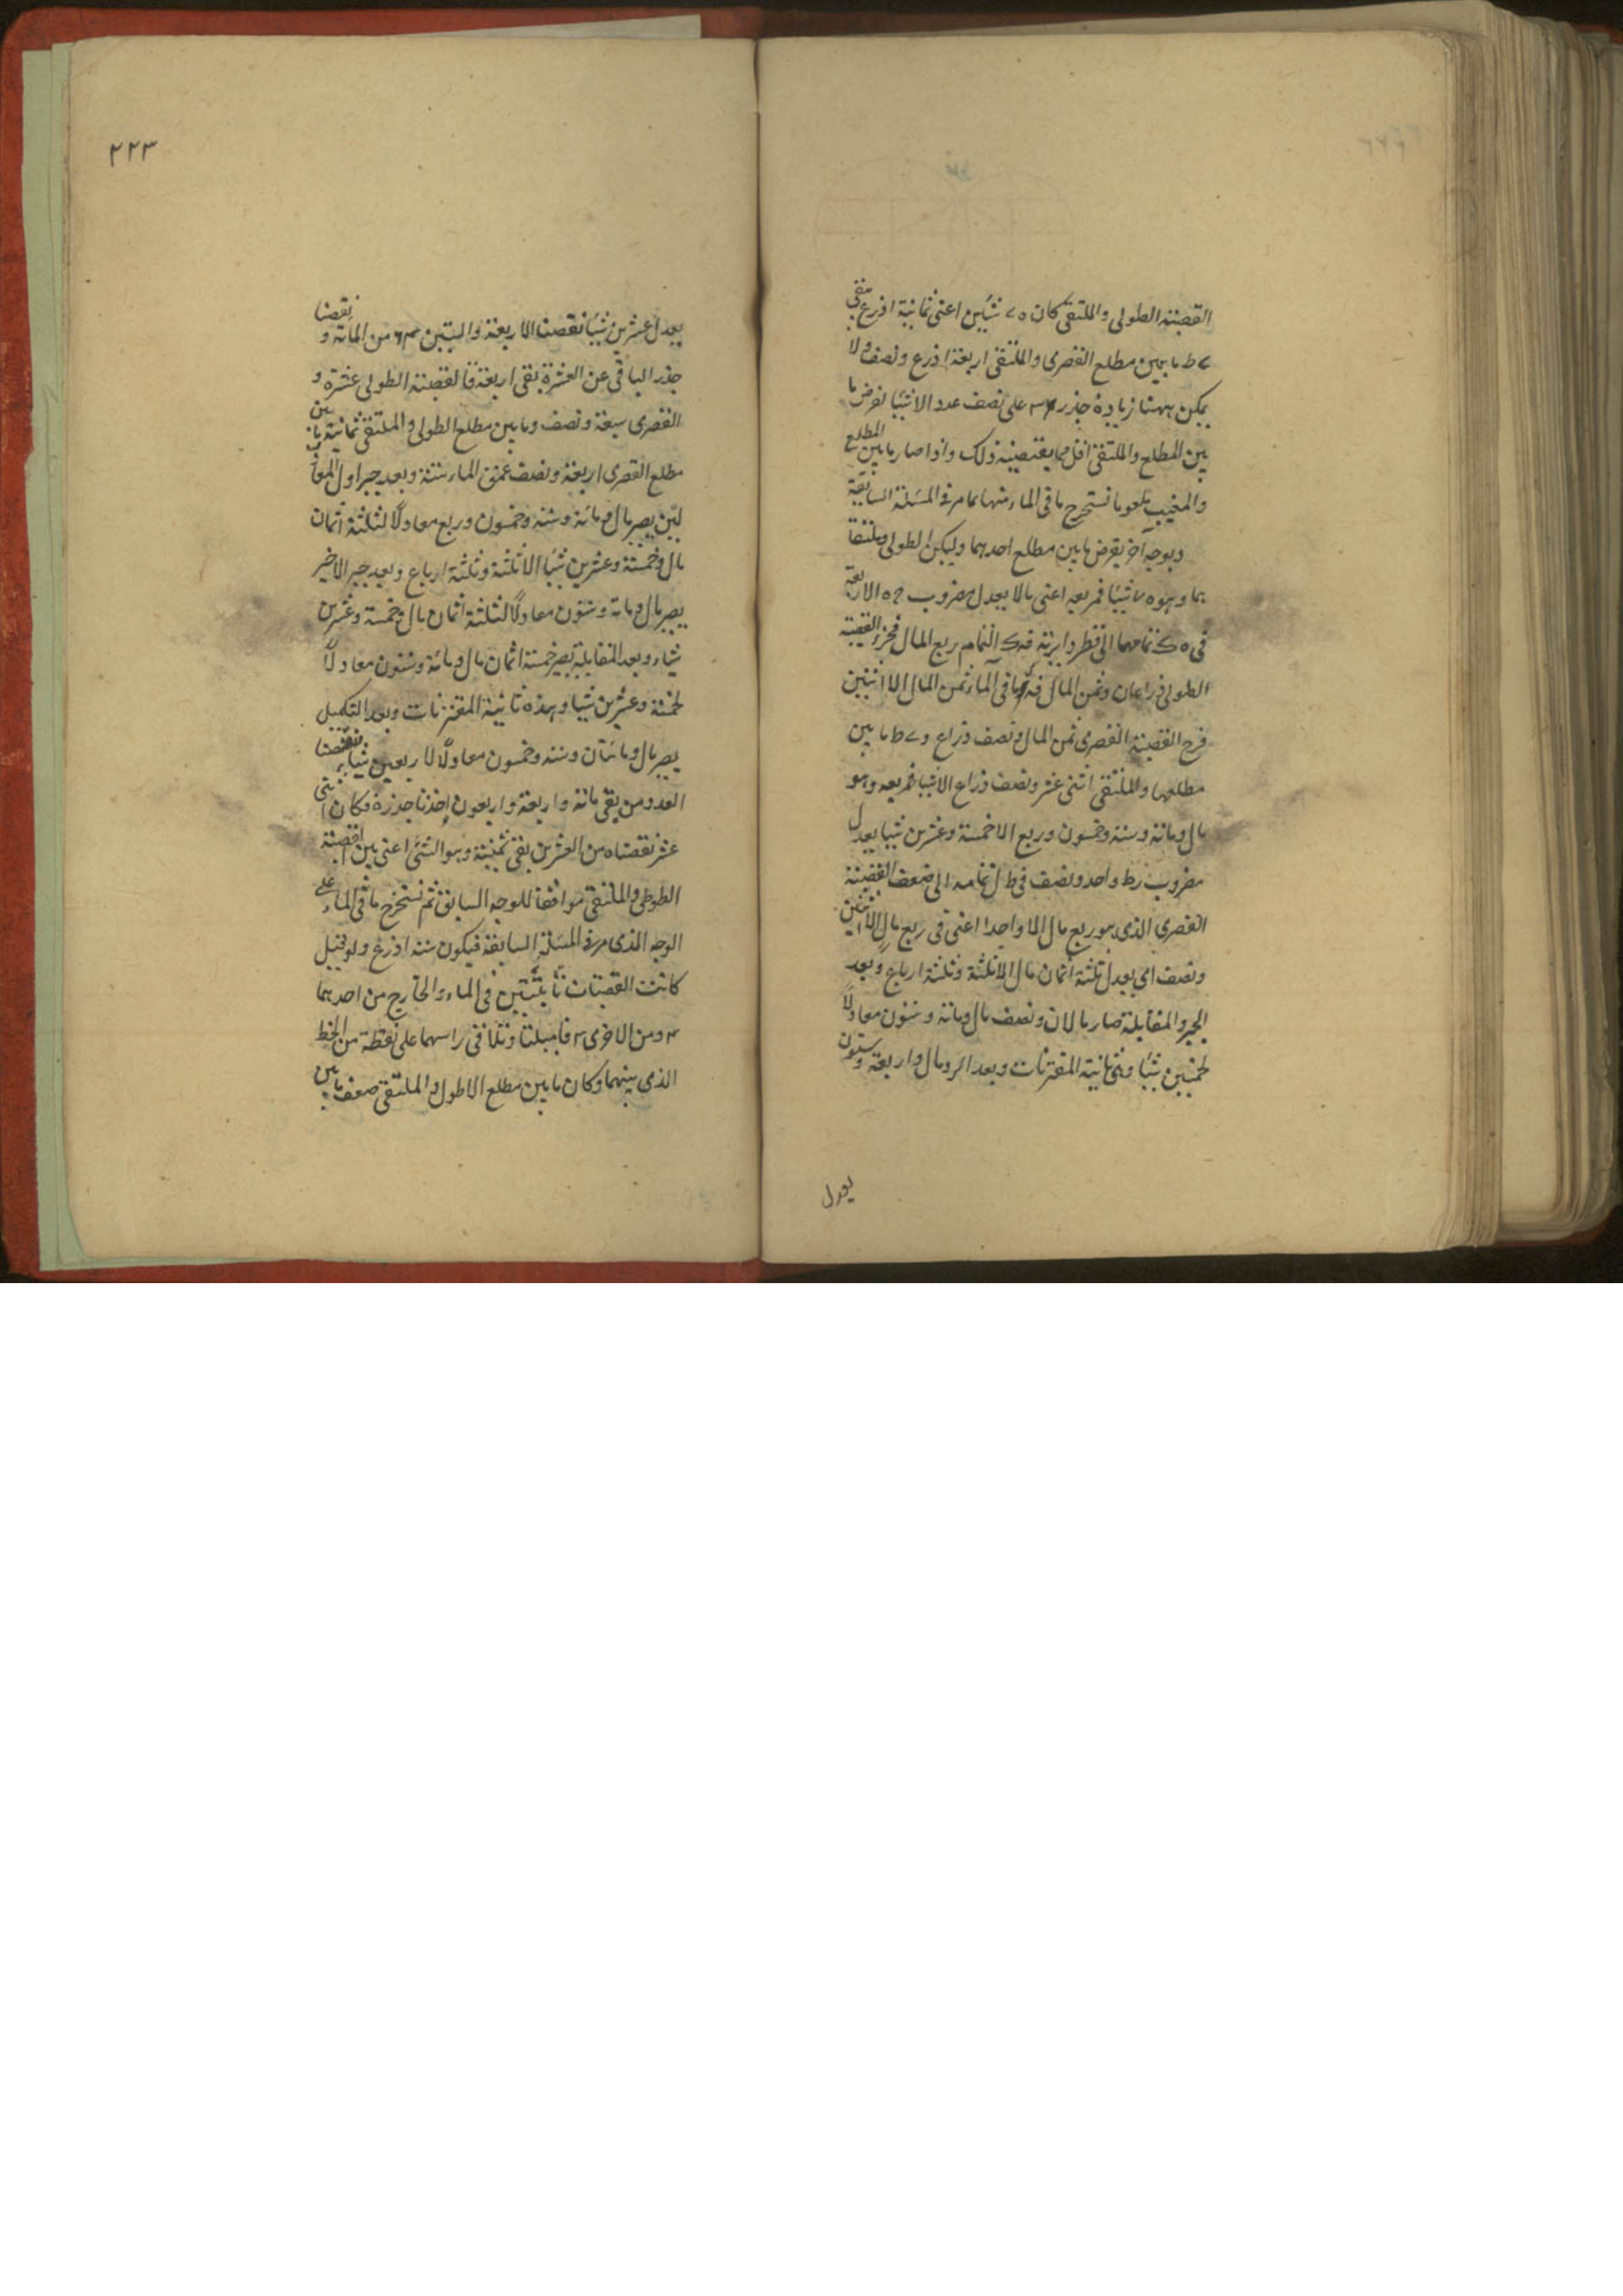 القصبته الطولى والملتقى كان ه ح شيئين اعنى ثمانية اذرع بقى
ح ط ما بين مطلع القصرى والملتقى اربعة اذرع ونصف ولا
يمكن ههنا زيادة جذر على نصف عدد الاشيا لفرض ما
بين المطلع والملتقى اقل مما يقتضيه ذلك واذا صار ما بين المطلع
والمغيب معلوما نستخرج ما فى الماء منها كما مر فى المسئلة السابقة
وبوجه آخر يفرض ما بين مطلع احدهما وليكن الطولى وملتقا
هما وهو ه شيئا فمربعه اعنى مالا يعدل مضروب ح ه الاربعة
فى تمامها الى قطر دايرته التمام ربع المال فجزء القصبة
الطولى ذراعان وثمن المال ما فى الماء ثمن المال الا اثنين
فرج القصبة القصرى ثمن المال ونصف ذراع و ح ط ما بين
مطلعها والملتقى اثنى عشر ونصف ذراع الا شيا فمربعه وهو
مال ومائة وستة وخمسون وربع الا خمسة وعشرين شيا يعدل
مضروب زط واحد ونصف فى ط ل تمامه الى ضعف القصبة
القصرى الذى هو ربع مال الا واحدا اعنى فى ربع مال الا اثنين
ونصف اى يعدل ثلثة اثمان مال الا ثلثة وثلثة ارباع وبعد
الجبر والمقابلة صار مالان ونصف مال ومائة وستون معادلا
لخمسين شيا وهى ثانية المقترنات وبعد الرد مال واربعة وستون
يعدل
٢٢٣
يعدل عشرين شيا نقصنا الاربعة والستين من المائة و نقصنا
جذر الباقى عن العشرة بقى اربعة فالقصبته الطولى عشرة و
القصرى سبعة ونصف وما بين مطلع الطولى والملتقى ثمانية وما بين
مطلع القصرى اربعة ونصف عمق الماء ستة وبعد جبر اول المعاد
لين يصير مال ومائة وستة وخمسون وربع معادلا لثلثة اثمان
مال وخمسة وعشرين شيا الا ثلثة وثلثة ارباع وبعد جبر الاخير
يصير مال ومائة وستون معادلا لثلثة اثمان مال وخمسة وعشرين
شياء وبعد المقابلة يصير خمسة اثمان مال ومائة وستون معادلا
لخمسة وعشرين شيا وهذه ثانية المقترنات وبعد التكميل
يصير مال ومائتان وستة وخمسون معادلا لاربعين شيا نقصنا
العدد من بقى مائة واربعة واربعون اخذنا جذره فكان اثنى
عشر نقصناه من العشرين بقى ثمنية وهو الشئ اعنى بين القصبة
الطولى والملتقى موافقا للوجه السابق ثم نستخرج ما فى الماء على
الوجه الذى مر فى المسئلة السابقة فيكون ستة اذرع ولو قيل
كانت القصبتان ثابتتين فى الماء والخارج من احدهما
ومن الاخرى ٣ فاميلتا وتلاقى راسهما على نقطة من الخط
الذى بينهما وكان ما بين مطلع الاطول والملتقى ضعف ما بين